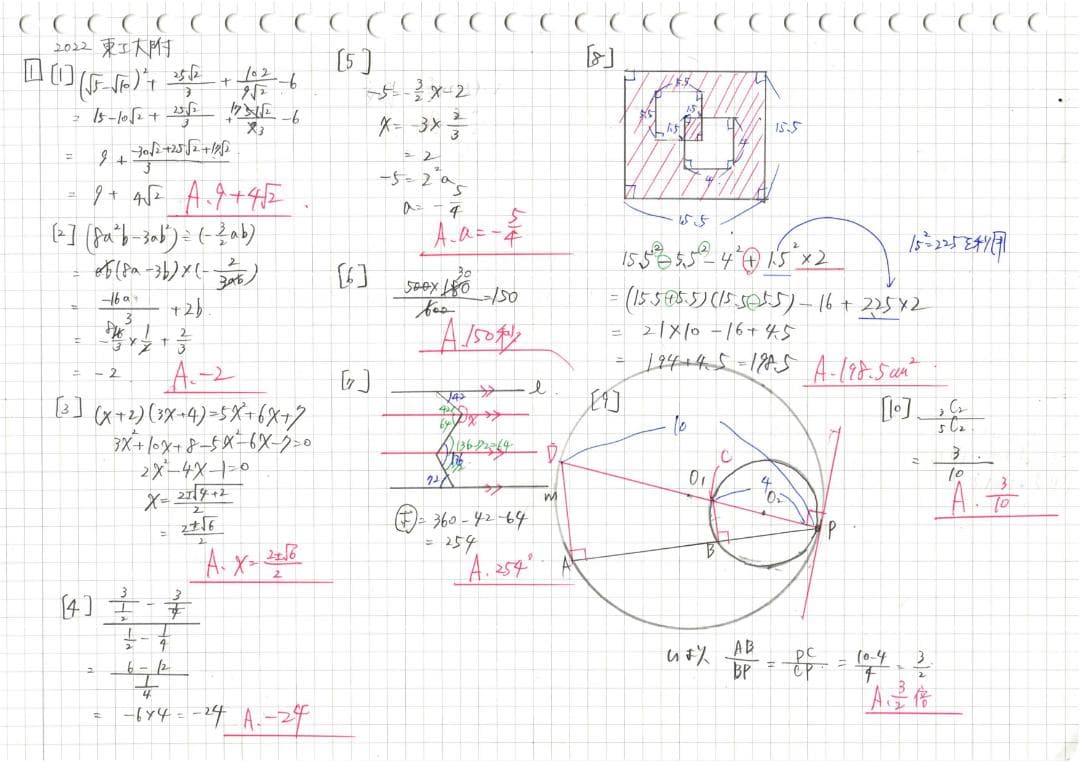 2022 東工大附
1 [1] (√5-√10)² + 25√2/3 + 102/9√2 - 6
= 15-10√2 + 25√2/3 + 17 51√2/93 - 6
= 9 + -30√2+25√2+17√2/3
= 9 + 4√2 A. 9+4√2
[2] (8a²b-3ab²) ÷ (-3/2 ab)
= ab(8a-3b) × (-2/3ab)
= -16a/3 + 2b
= -8 16/3 × 1/2 + 2/3
= -2 A. -2
[3] (x+2)(3x+4)=5x²+6x+7
3x²+10x+8-5x²-6x-7=0
2x²-4x-1=0
x= 2±√4+2/2
= 2±√6/2
A. x= 2±√6/2
[4] 3/(1/2) - 3/(1/4)
1/2 - 1/4
= 6-12
1/4
= -6×4 = -24 A. -24
[5]
-5=-3/2x-2
x= -3×2/3
= 2
-5= 2²a
a= -5/4
A. a= -5/4
[6] 500×180 30/600 =150
A. 150秒
[7]
l
42
42 x
64
136-72=64
136
72
72
m
= 360-42-64
= 254
A. 254°
[8]
5.5
5.5 1.5
1.5 4
4
15.5
15.5
15²=225を利用
15.5²-5.5²-4²+1.5²×2
=(15.5+5.5)(15.5-5.5)-16+2.25×2
= 21×10-16+4.5
= 194+4.5=198.5 A. 198.5cm²
[9]
10
D
C
O₁ 4
O₂
P
B
A
AB/BP = DC/CP = 10-4/4 = 3/2
A. 3/2倍
[10] ₃C₂/₅C₂
= 3/10
A. 3/10